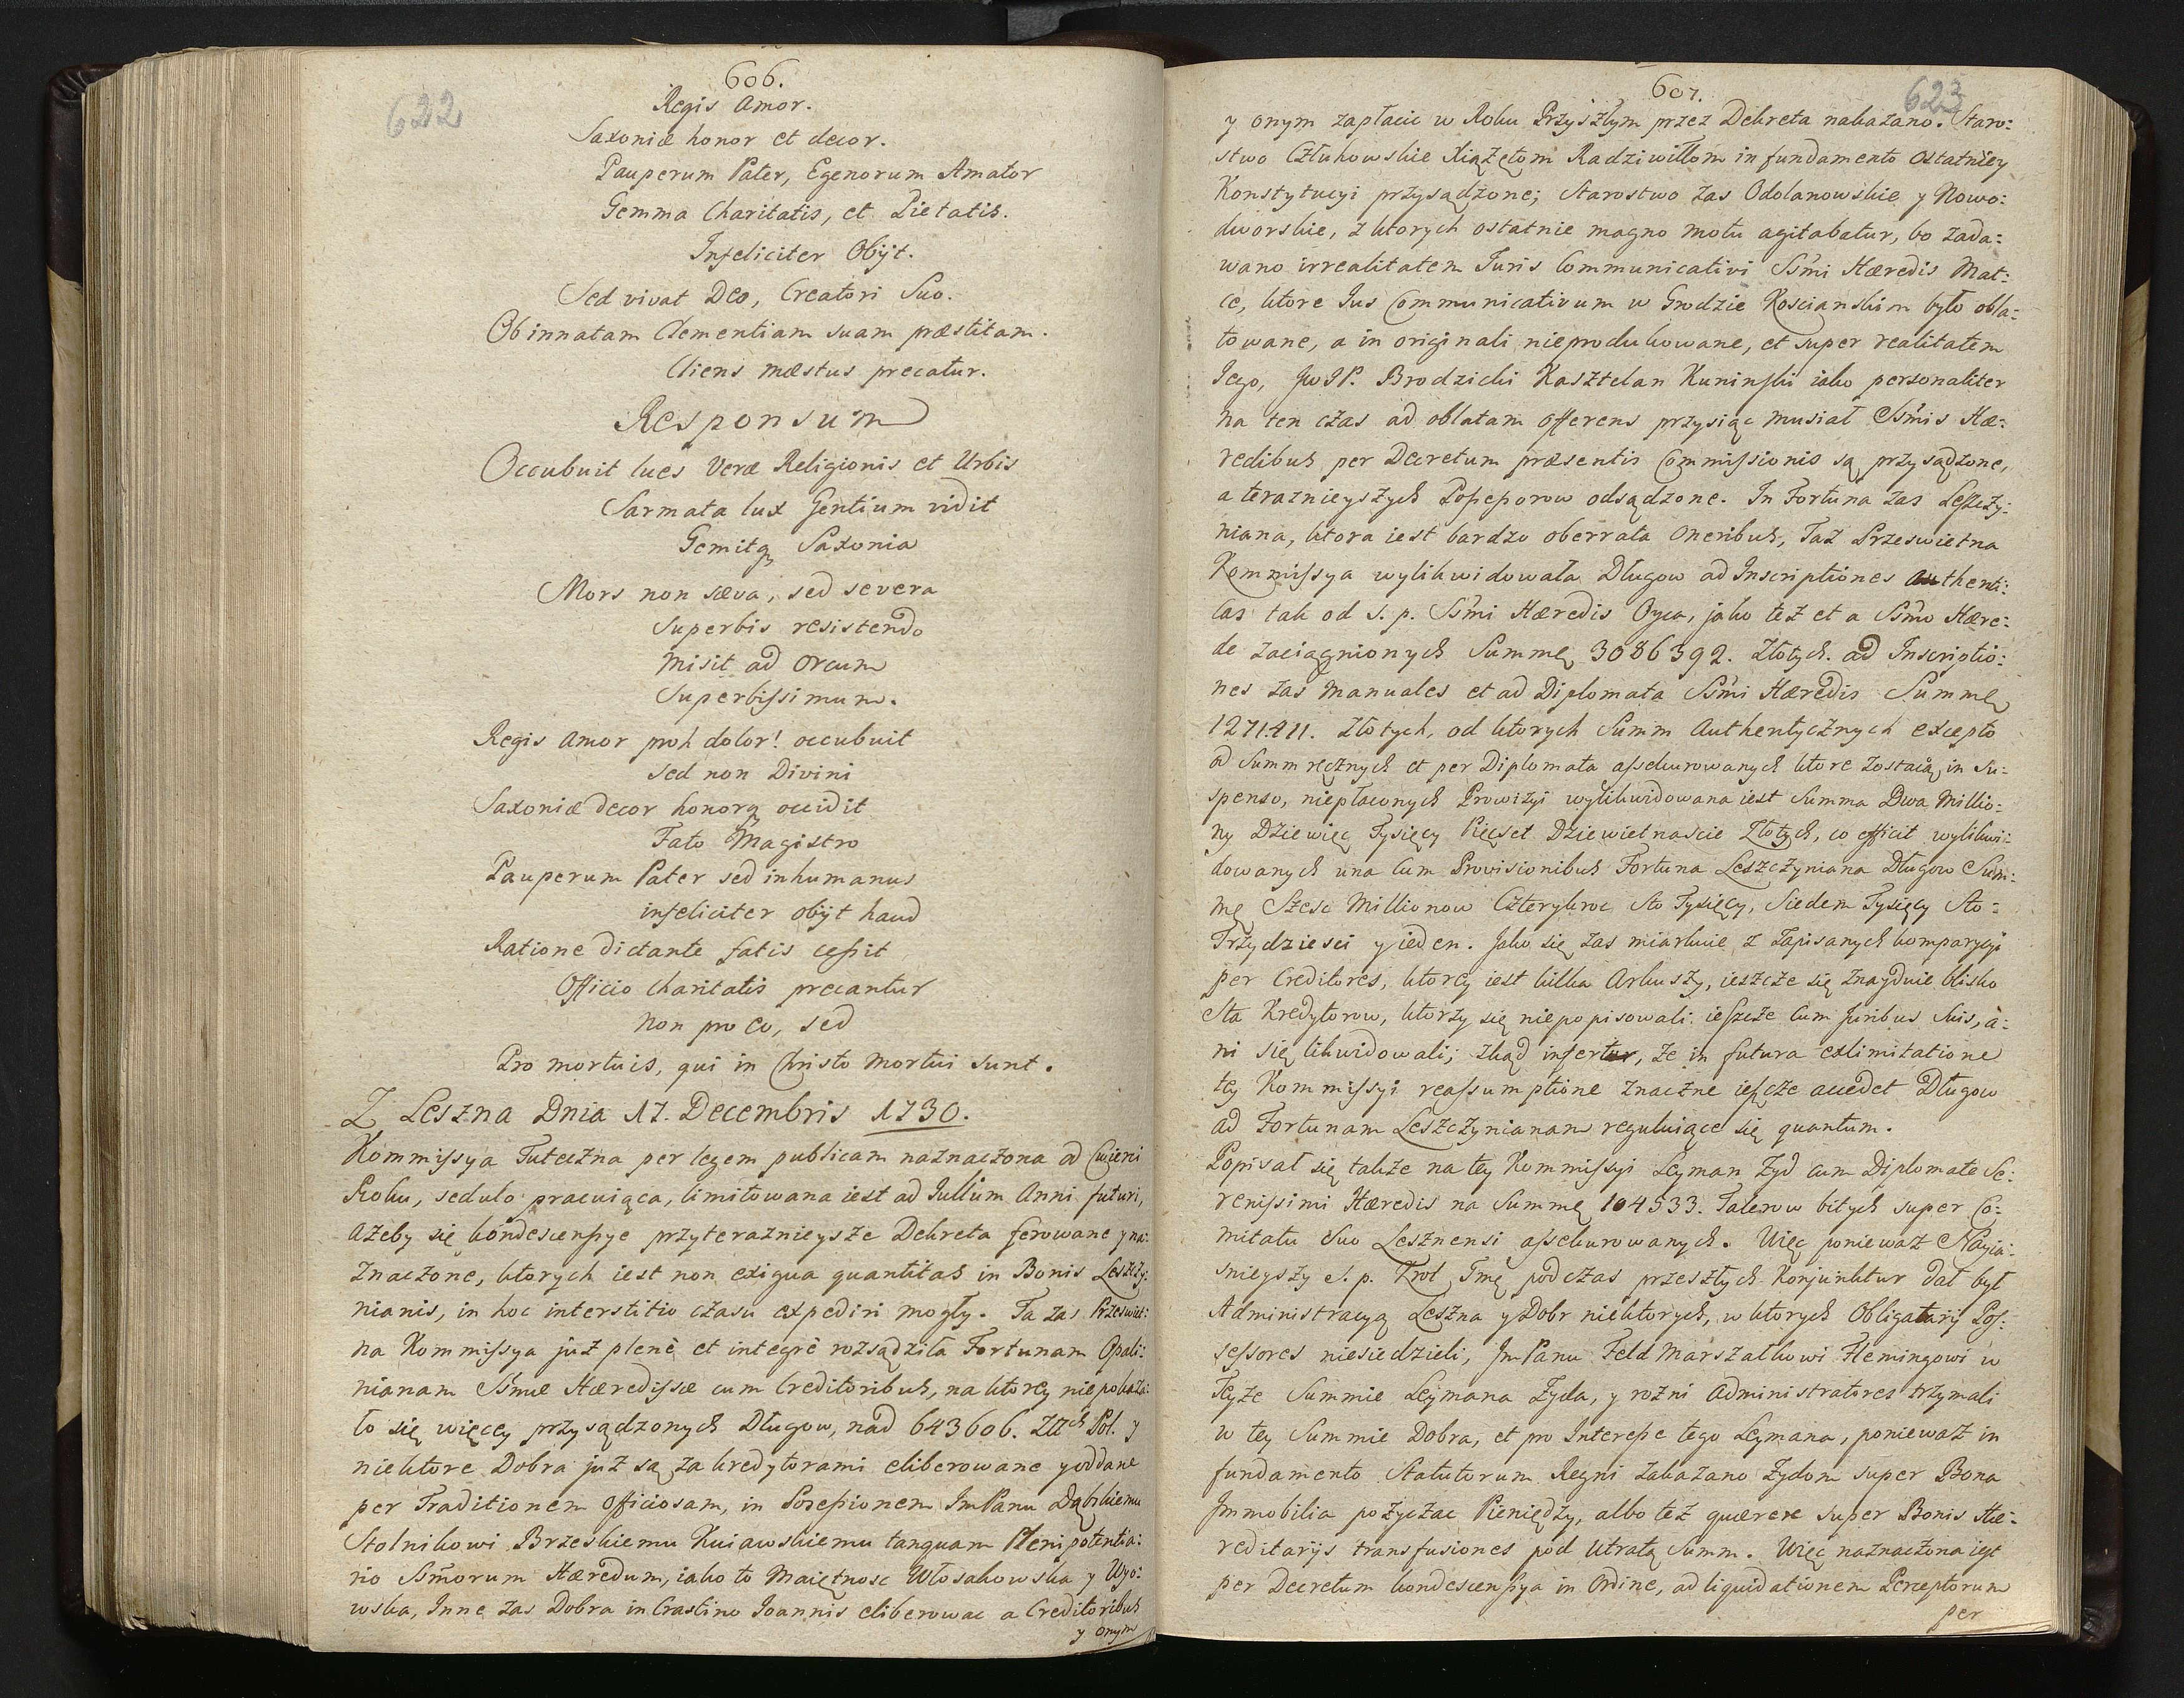 606.
622
Regis Amor.
Saxoniæ honor et decor.
Pauperum Pater, Egenorum Amator
Gemma Charitatis, et Pietatis.
Infeliciter Obijt.
Sed vivat Deo, Creatori Suo.
Ob innatam Clementiam suam præstitam.
Cliens mæstus precatur.
Responsum
Occubuit lues Veræ Religionis et Urbis
Sarmata lux Gentium vidit
Gemitq Saxonia
Mors non sæva, sed severa
Superbis resistendo
misit ad Orcum
Superbissimum.
Regis Amor proh dolor! occubuit
sed non Divini
Saxoniæ decor honorq occidit
Fato Magistro
Pauperum Pater sed inhumanus
infeliciter obijt haud
Ratione dictante fatis cessit
Officio Charitatis precantur
non pro eo, sed
Pro mortuis, qui in Christo mortui sunt.
Z Leszna Dnia 17. Decembris 1730.
Kommissya Tuteczna per legem publicam naznaczona ad Cwierci
Roku, sedulo pracuiąca, limitowana iest ad Julium Anni futuri,
ażeby się kondescensye przyteraznieysze Dekreta ferowane y na:
znaczone, ktorych iest non exigua quantitas in Bonis Leszczy:
nianis, in hoc interstitio czasu expediri mogły. Ta zas Przeswiet:
na Kommissya już plenè et integrè rozsądziła Fortunam Opali:
nianam Ssmæ Hæredissæ cum Creditoribus, na ktorey nie pokaza:
ło się więcey przysądzonych Długow, nad 643606. Złtch Pol. y
niektore Dobra już są za kredytorami eliberowane y oddane
per Traditionem Officiosam, in Possessionem ImPanu Dąbskiemu
Stolnikowi Brzeskiemu Kuiawskiemu tanquam Plenipotentia:
rio Ssmorum Hæredum, iako to Maiętnosc Włosakowska y Wyo:
wska, Inne zas Dobra in Crastino Joannis eliberowac a Creditoribus
y onym
607.
623
y onym zapłacic w Roku Przyszłym przez Dekreta nakazano. Staro:
stwo Człuchowskie Xiążętom Radziwiłłom in fundamento Ostatniey
Konstytucyi przysądzone; Starostwo zas Odolanowskie y Nowo:
dworskie, z ktorych ostatnie magno motu agitabatur, bo zada:
wano irrealitatem Juris Communicativi Ssmi Hæredis Mat:
ce, ktore Jus Communicativum w Grodzie Koscianskim było obla:
towane, a in originali nieprodukowane, et super realitatem
Jego, JwJP. Brodzicki Kasztelan Kuninski iako personaliter
na ten czas ad oblatam offerens przysiąc musiał Ssmis Hæ:
redibus per Decretum præsentis Commissionis są przysądzone,
a teraznieyszych Possesorow odsądzone. In Fortuna zas Leszczy:
niana, ktora iest bardzo oberrata Oneribus, Taż Przeswietna
Kommissya wylikwidowała Długow ad Inscriptiones Authenti:
cas tak od S. p. Ssmi Hæredis Oyca, jako też et a Ssmo Hære:
de zaciągnionych Summę 3086392. Złotych. ad Inscriptio:
nes zas manuales et ad Diplomata Ssmi Hæredis Summę
1271411. Złotych, od ktorych Summ Authentycznych excepto
ad Summ ręcznych et per Diplomata assekurowanych ktore zostaią in su:
spenso, niepłaconych Prowizyi wylikwidowana iest Summa Dwa Millio:
ny Dziewięc Tysięcy Pięcset Dziewietnascie Złotych, co efficit wylikwi:
dowanych una cum Provisionibus Fortuna Leszczyniana Długow Sum:
mę Szesc Millionow Czterykroc Sto Tysięcy, Siedem Tysięcy Sto:
Trzydziesci y ieden. Jako się zas miarkuie z zapisanych komparycyi
per Creditores, ktorey iest kilka Arkuszy, ieszcze się znayduie blisko
Sta Kredytorow, ktorzy się niepopisowali ieszcze cum juribus suis, a:
ni się likwidowali; zkąd infertur, że in futura exlimitatione
tey Kommissyi reassumptione znaczne ieszcze accedet Długow
ad Fortunam Leszczynianam reguluiące się quantum.
Popisał się także na tey Kommissyi Leyman Żyd cum Diplomate Se:
renissimi Hæredis na Summę 104533. Talerow bitych super Co:
mitatu suo Lesznensi assekurowanych. Więc ponieważ Nayia:
snieyszy S. p. Krol Jmę podczas przeszłych Konjunktur dał był
Administracyą Leszna y Dobr niektorych, w ktorych Obligatarij Pos:
sessores niesiedzieli, ImPanu Feld Marszałkowi Flemingowi w
Teyże Summie Leymana Żyda, y rozni Administratores trzymali
w tey Summie Dobra, et pro Interesse tego Leymana, ponieważ in
fundamento Statutorum Regni zakazano Żydom super Bona
Immobilia pożyczac Pieniędzy, albo też quærere super Bonis Hæ:
reditarijs transfusiones pod Utratą Summ. Więc naznaczona iest
per Decretum kondescensya in Ordine, ad liquidationem Perceptorum
per